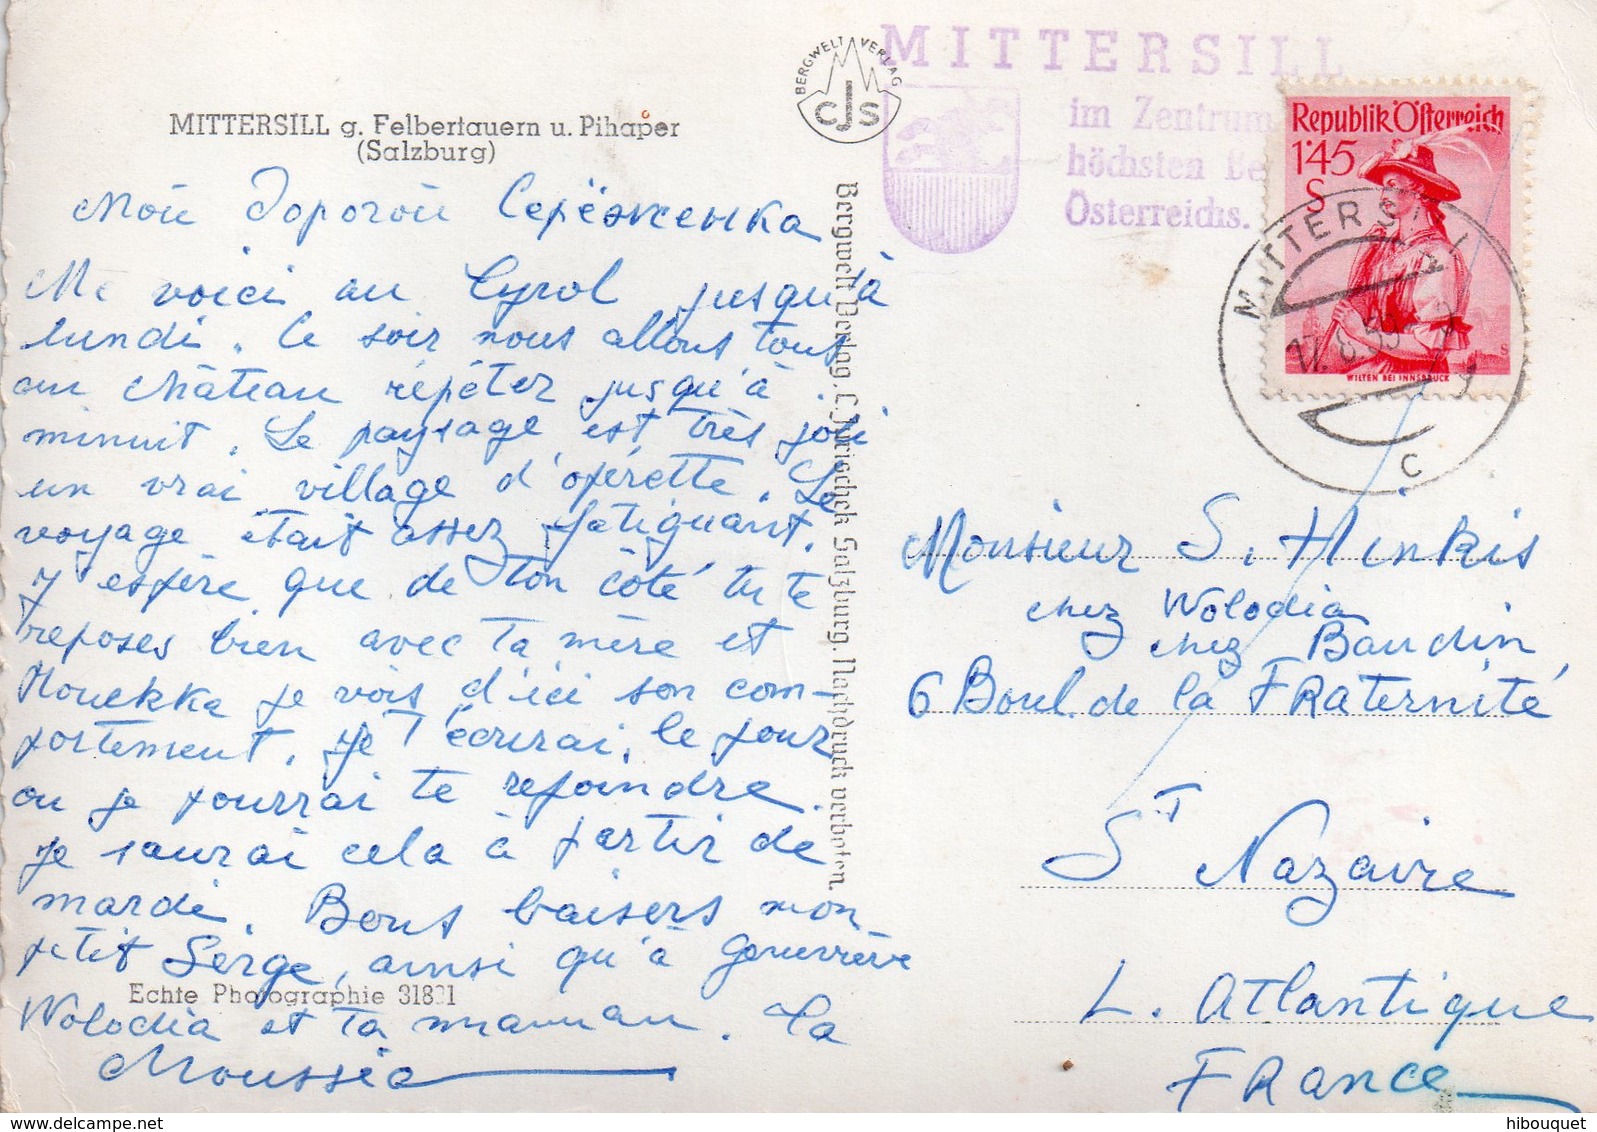 MITTERSILL g. Felbertauern u. Pihaper
(Salzburg)
BERGWELT VERLAG
CJS
MITTERSILL
im Zentrum
höchsten Be
Österreichs.
Republik Österreich
1'45
S
WILTEN BEI INNSBRUCK
MITTERSILL
17.8.59
C
Мой дорогой Серёженька
Me voici au Tyrol jusqu'à
lundi. Ce soir nous allons tous
au château répéter jusqu'à
minuit. Le paysage est très joli
un vrai village d'opérette. Le
voyage était assez fatiguant.
J'espère que de ton côté tu te
reposes bien avec ta mère et
je vois d'ici son com-
portement. Je t'écrirai, le jour
ou je pourrai te rejoindre.
Je saurai cela à partir de
mardi. Bons baisers mon
petit Serge, ainsi qu'à Geneviève
Wolodia et ta maman. Ta
Moussia
Echte Photographie 31831
Bergwelt Verlag, C. Jurischek Salzburg. Nachdruck verboten.
Monsieur S. Hinkis
chez Wolodia
chez Baudin
6 Boul. de la FRaternité
St Nazaire
L. Atlantique
FRance
hibouquet